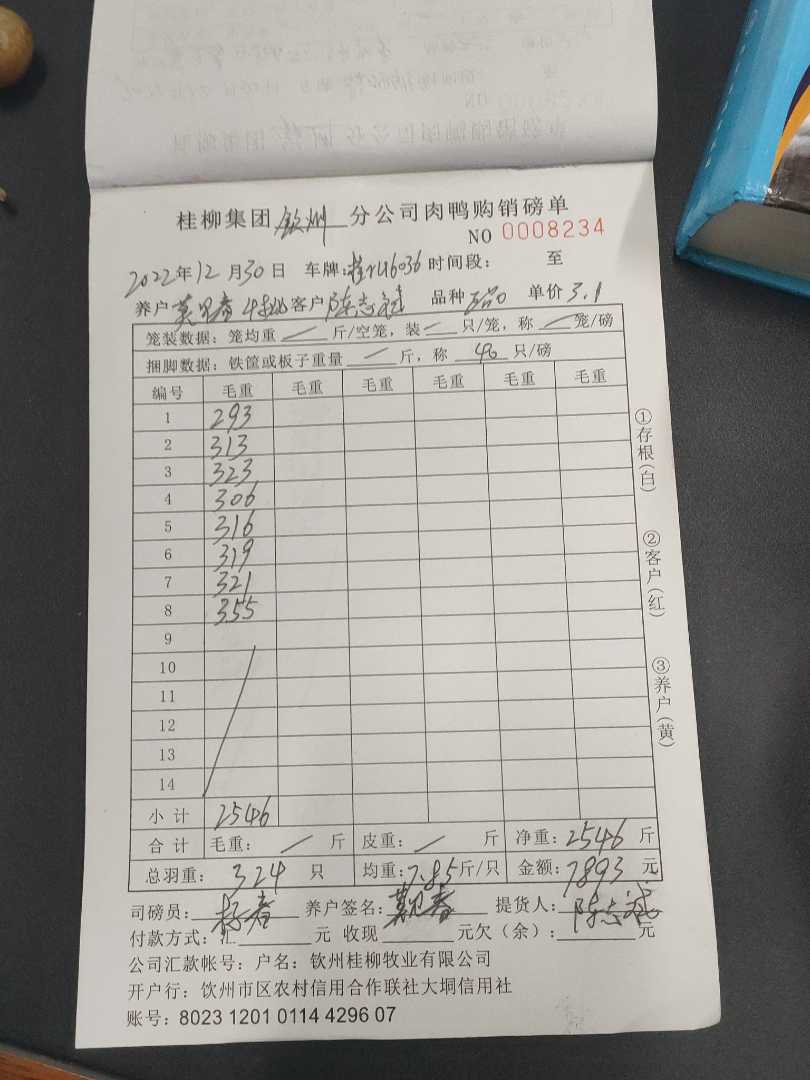 桂柳集团 钦州 分公司肉鸭购销磅单
NO 0008234
2022年12月30日 车牌: 时间段: 至
养户 客户 陈志斌 品种 单价 3.1
笼装数据: 笼均重 — 斤/空笼, 装 — 只/笼, 称 — 笼/磅
捆脚数据: 铁筐或板子重量 — 斤, 称 只/磅
编号 毛重 毛重 毛重 毛重 毛重 毛重
1 293
2 313
3 323
4 306
5 316
6 319
7 321
8 355
9
10
11
12
13
14
小计 2546
合计 毛重: — 斤 皮重: — 斤 净重: 2546 斤
总羽重: 324 只 均重: 7.85 斤/只 金额: 7893 元
司磅员: 养户签名: 提货人: 陈志斌
付款方式: 汇 元 收现 元欠(余): 元
公司汇款帐号: 户名: 钦州桂柳牧业有限公司
开户行: 饮州市区农村信用合作联社大垌信用社
账号: 8023 1201 0114 4296 07
①存根(白)
②客户(红)
③养户(黄)